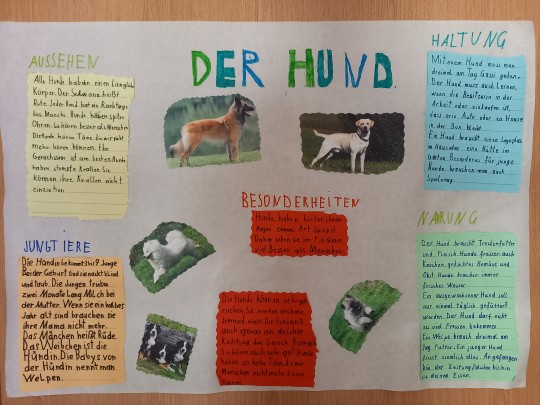 DER HUND
AUSSEHEN
Alle Hunde haben einen Länglich
Körper. Der Schwanz heißt
Rute. Jeder Hund hat ein Raubtiergebiss
Manche Hunde haben spitze
Ohren. So hören besser als Menschen
Die Hunde hören Töne die wir nicht
mehr hören können. Ihr
Geruchssinn ist am besten. Hunde
haben stumpfe Krallen. Sie
können ihre Krallen nicht
einziehen
JUNGTIERE
Die Hündin bekommt 3 bis 7 Junge
Bei der Geburt sind sie nackt blind
und taub. Die Jungen trinken
zwei Monate Lang Milch bei
der Mutter. Wenn sie ein halbes
Jahr alt sind brauchen sie
ihre Mama nicht mehr.
Das Mänchen heißt Rüde.
Das Weibchen ist die
Hündin. Die Babys von
der Hündin nennt man
Welpen.
BESONDERHEITEN
Hunde haben hinter ihren
Augen einen Art Spiegel.
Daher sehen sie im Finstern
viel Besser als Menschen
Die Hunde können sehr gut
riechen. Sie
auch genau aus welcher
Richtung das Geräusch kommt
Sie hören auch sehr gut. Hunde
hören so hohe Töne die wir
Menschen nicht mehr hören
HALTUNG
Mit einem Hund muss man
dreimal am Tag Gassi gehen.
Der Hund muss auch Lernen,
wenn die Besitzerin in der
Arbeit oder einkaufen ist,
dass er im Auto oder zu Hause
in der Box bleibt
Ein Hund braucht einen Liegeplatz
im Haus oder eine Hütte im
Garten. Besonderes für junge
Hunde brauchen man auch
Spielzeug.
NARUNG
Der Hund braucht Trockenfutter
und Fleisch. Hunde fressen auch
Knochen, gekochtes Gemüse und
Obst. Hunde brauchen immer
frisches Wasser.
Ein ausgewachsener Hund soll
nur einmal täglich gefüttert
werden. Der Hund darf nicht
zu viel Fressen bekommen.
Ein Welpe braucht dreimal am
Tag Futter. Ein junger Hund
frisst ziemlich alles. Angefangen
bei der Zeitung/Schuhen bis hin
zu deinem Essen.